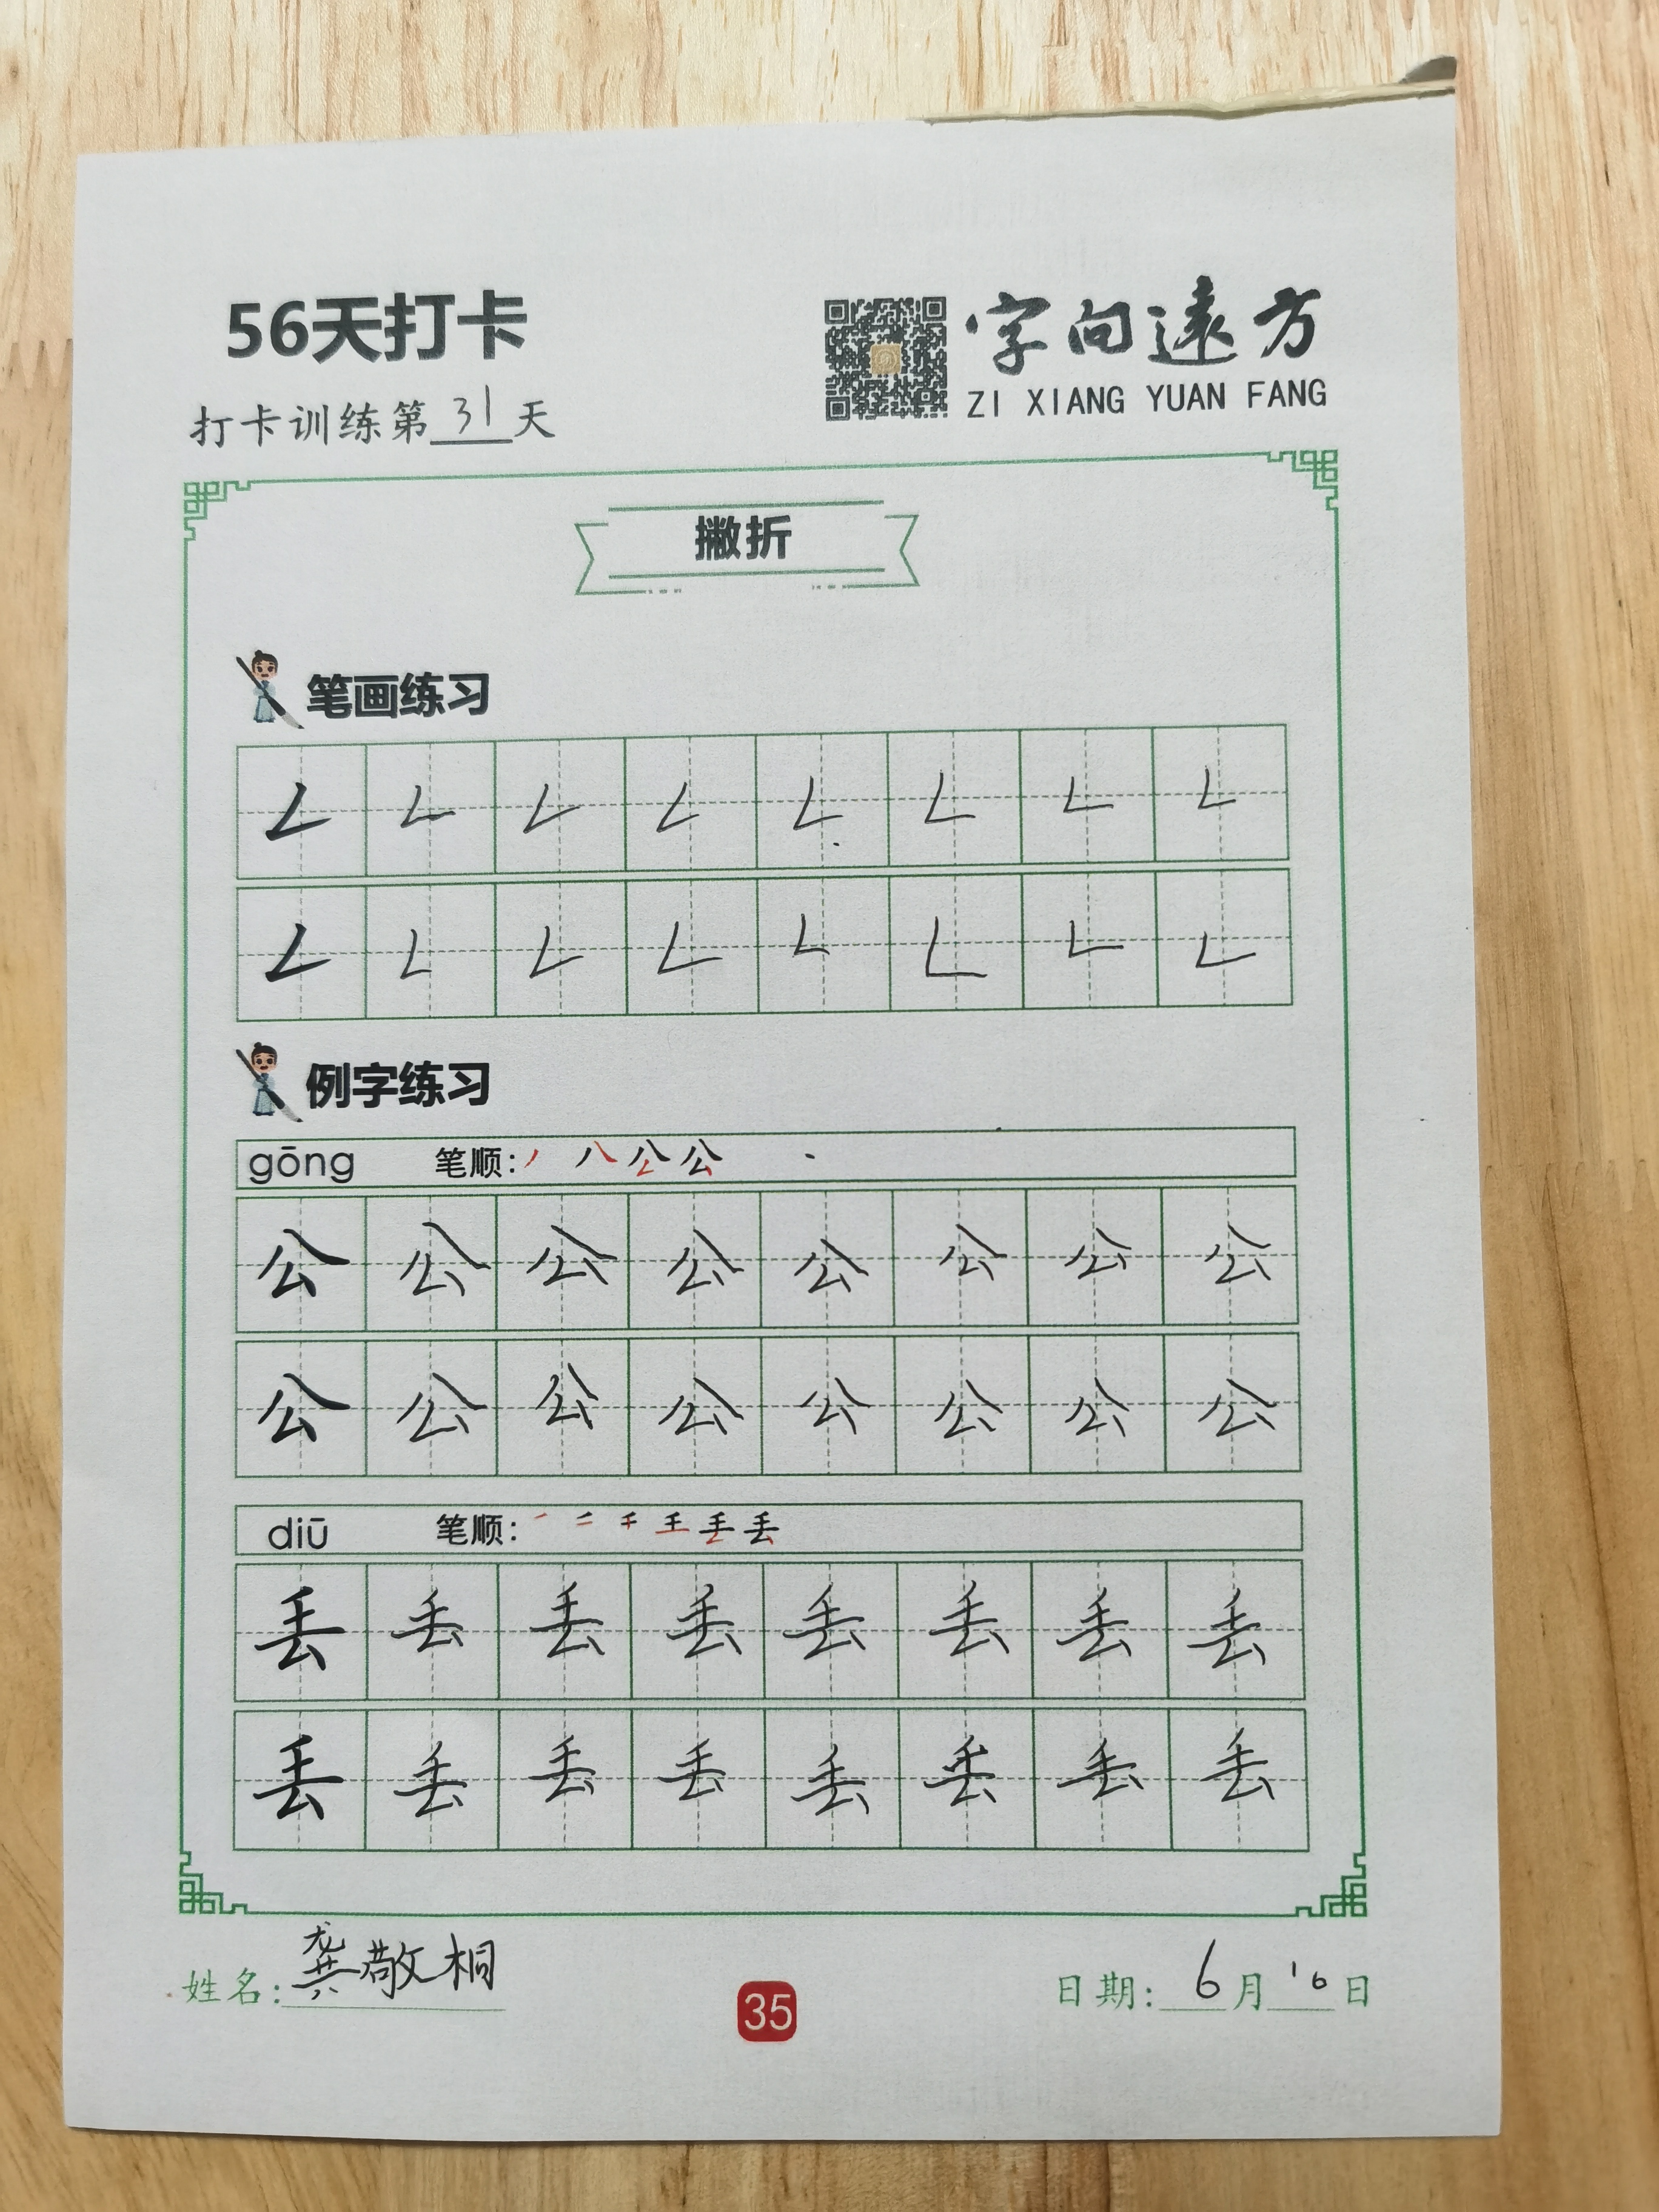 56天打卡
字向遠方
ZI XIANG YUAN FANG
打卡训练第31天
撇折
笔画练习
𠃋 𠃋 𠃋 𠃋 𠃋 𠃋 𠃋 𠃋
𠃋 𠃋 𠃋 𠃋 𠃋 𠃋 𠃋 𠃋
例字练习
gōng 笔顺:丿 八 公 公
公 公 公 公 公 公 公 公
公 公 公 公 公 公 公 公
diū 笔顺: 丢
丢 丢 丢 丢 丢 丢 丢 丢
丢 丢 丢 丢 丢 丢 丢 丢
姓名:龚敬桐
35
日期:6月16日